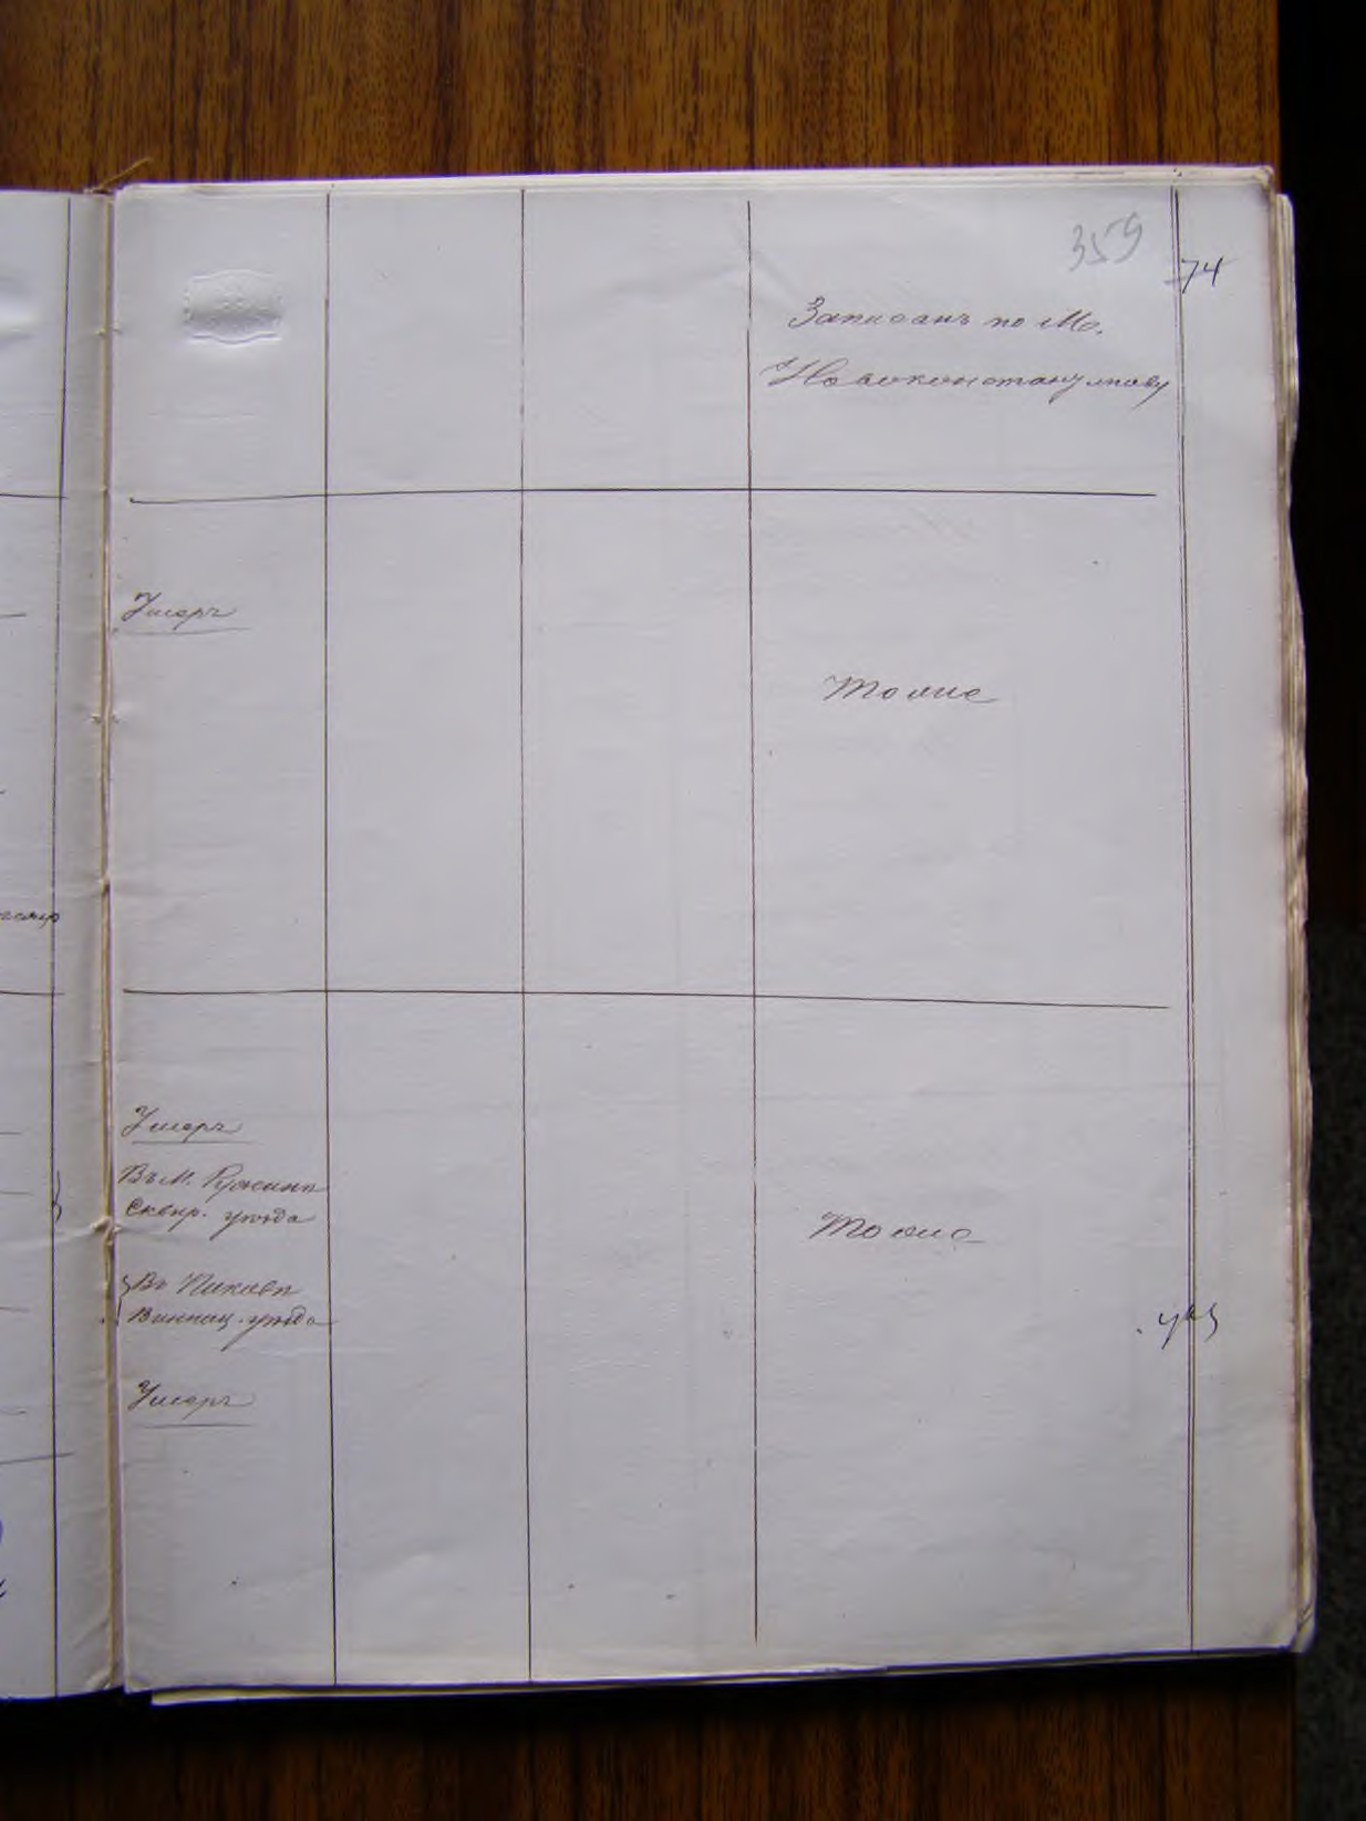 359
74
Записанъ по М.
Новоконстантинову
Умеръ
Тоже
Умеръ
Въ М. Ружинѣ
Сквир. уѣзда
Тоже
Въ Пиковѣ
Винниц. уѣзда
Умеръ